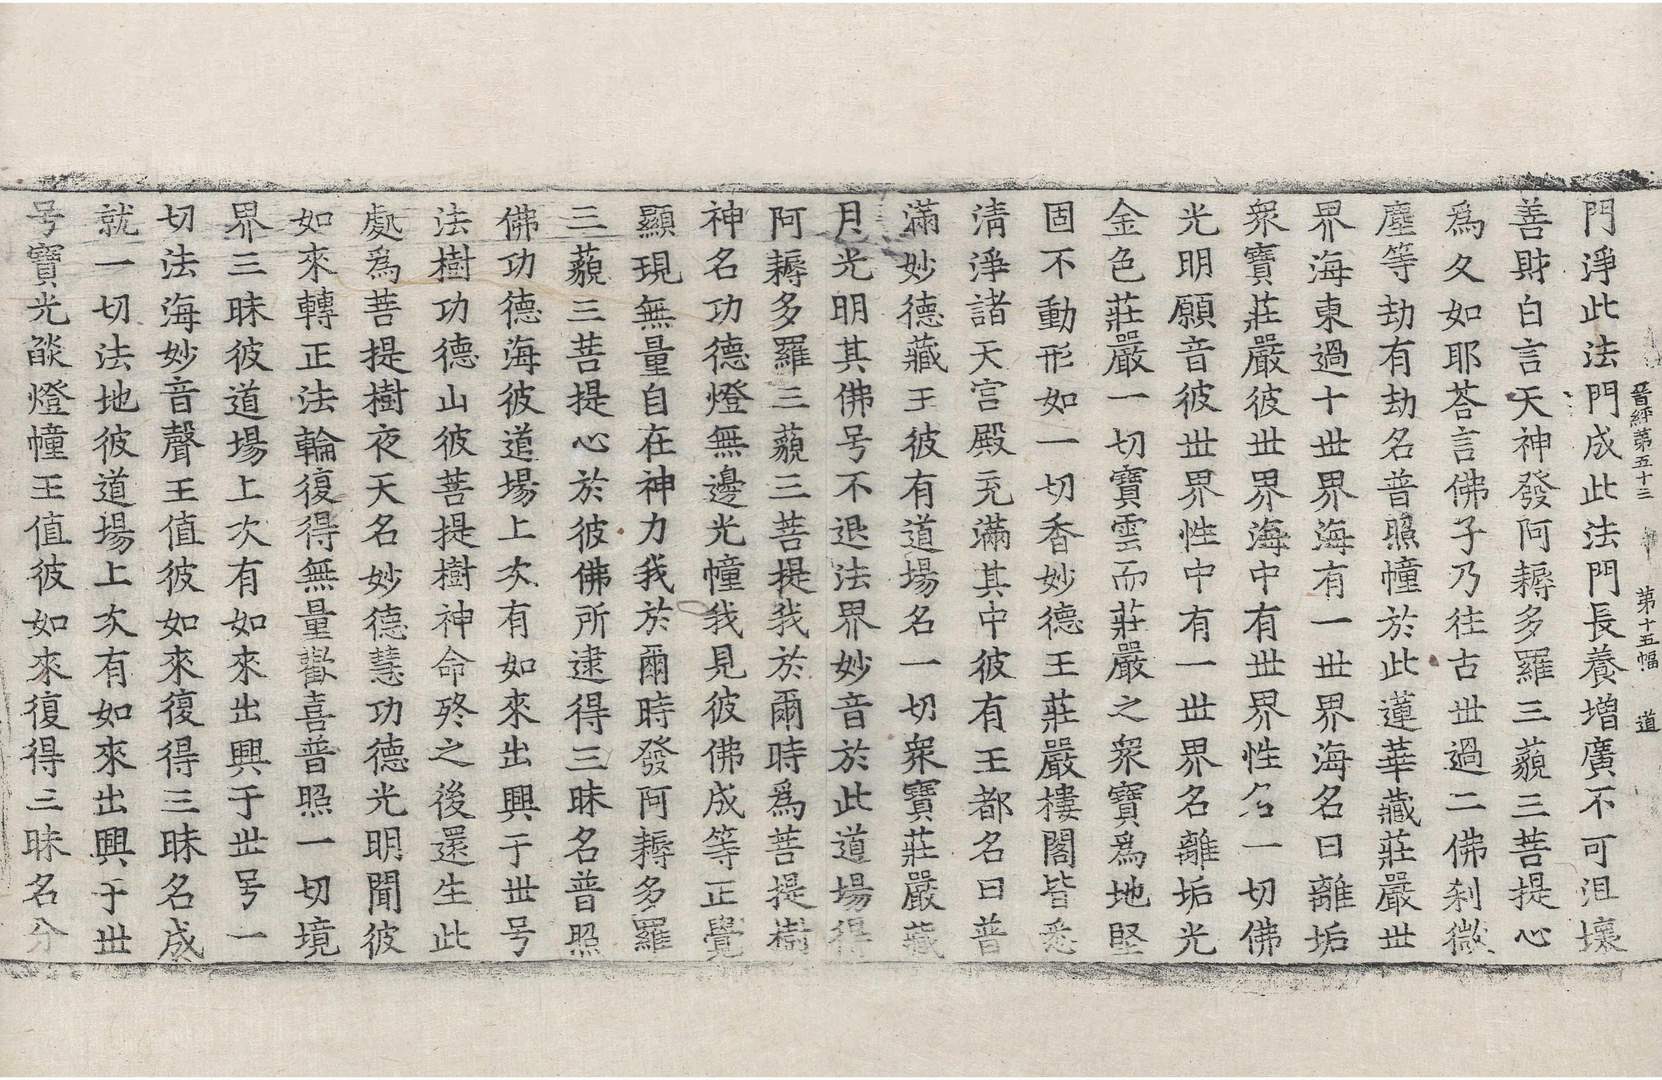 晉經第五十三 第十五幅 道
門淨此法門成此法門長養增廣不可沮壞
善財白言天神發阿耨多羅三藐三菩提心
爲久如耶荅言佛子乃往古世過二佛刹微
塵等劫有劫名普照幢於此蓮華藏莊嚴世
界海東過十世界海有一世界海名曰離垢
衆寶莊嚴彼世界海中有世界性名一切佛
光明願音彼世界性中有一世界名離垢光
金色莊嚴一切寶雲而莊嚴之衆寶爲地堅
固不動形如一切香妙德王莊嚴樓閣皆悉
清淨諸天宮殿充滿其中彼有王都名曰普
滿妙德藏王彼有道場名一切衆寶莊嚴藏
月光明其佛号不退法界妙音於此道場得
阿耨多羅三藐三菩提我於爾時爲菩提樹
神名功德燈無邊光幢我見彼佛成等正覺
顯現無量自在神力我於爾時發阿耨多羅
三藐三菩提心於彼佛所逮得三昧名普照
佛功德海彼道場上次有如來出興于世号
法樹功德山彼菩提樹神命終之後還生此
處爲菩提樹夜天名妙德慧功德光明聞彼
如來轉正法輪復得無量歡喜普照一切境
界三昧彼道場上次有如來出興于世号一
切法海妙音聲王值彼如來復得三昧名成
就一切法地彼道場上次有如來出興于世
号寶光燄燈幢王值彼如來復得三昧名分